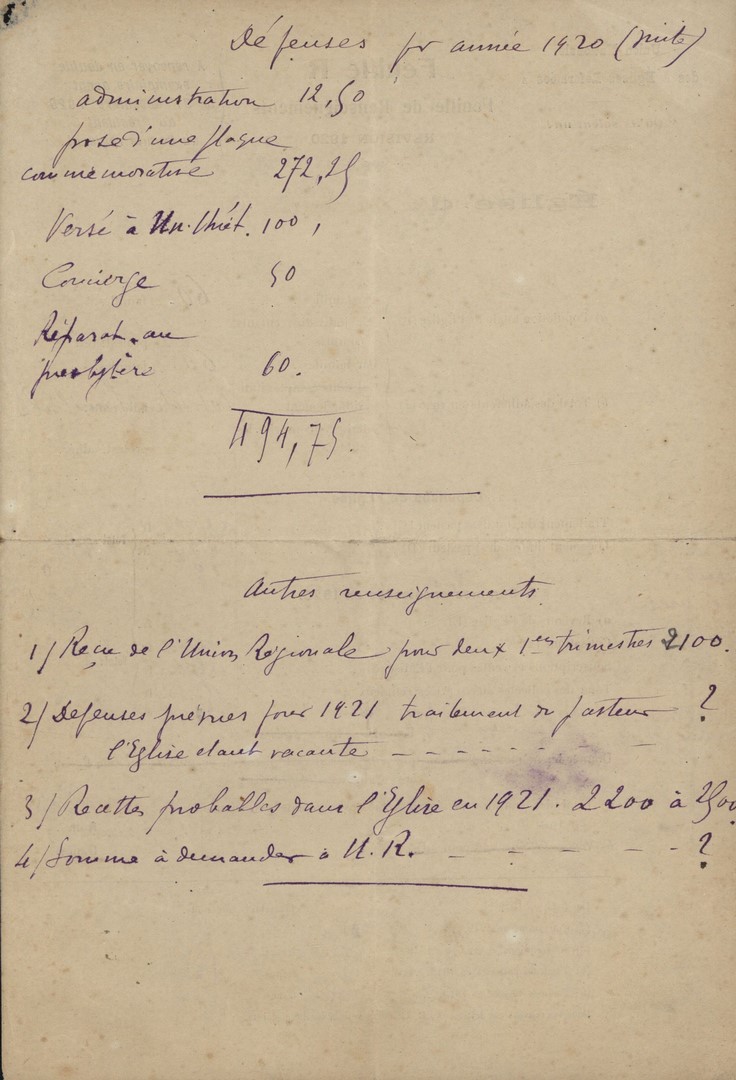 Dépenses pr année 1920 (suite)
administration 12,50
pose d'une plaque
commémorative 272,25
Versé à Un. 100,
Concierge 50
Réparat. au
presbytère 60.
494,75.
Autres renseignements
1/ Reçu de l'Union Régionale pour deux 1ers trimestres 2100.
2/ Dépenses prévues pour 1921 traitement du pasteur ?
l'Eglise étant vacante - - - - - - -
3/ Recettes probables dans l'Eglise en 1921. 2200 à 2500
4/ Somme à demander à U. R. - - - - - - ?